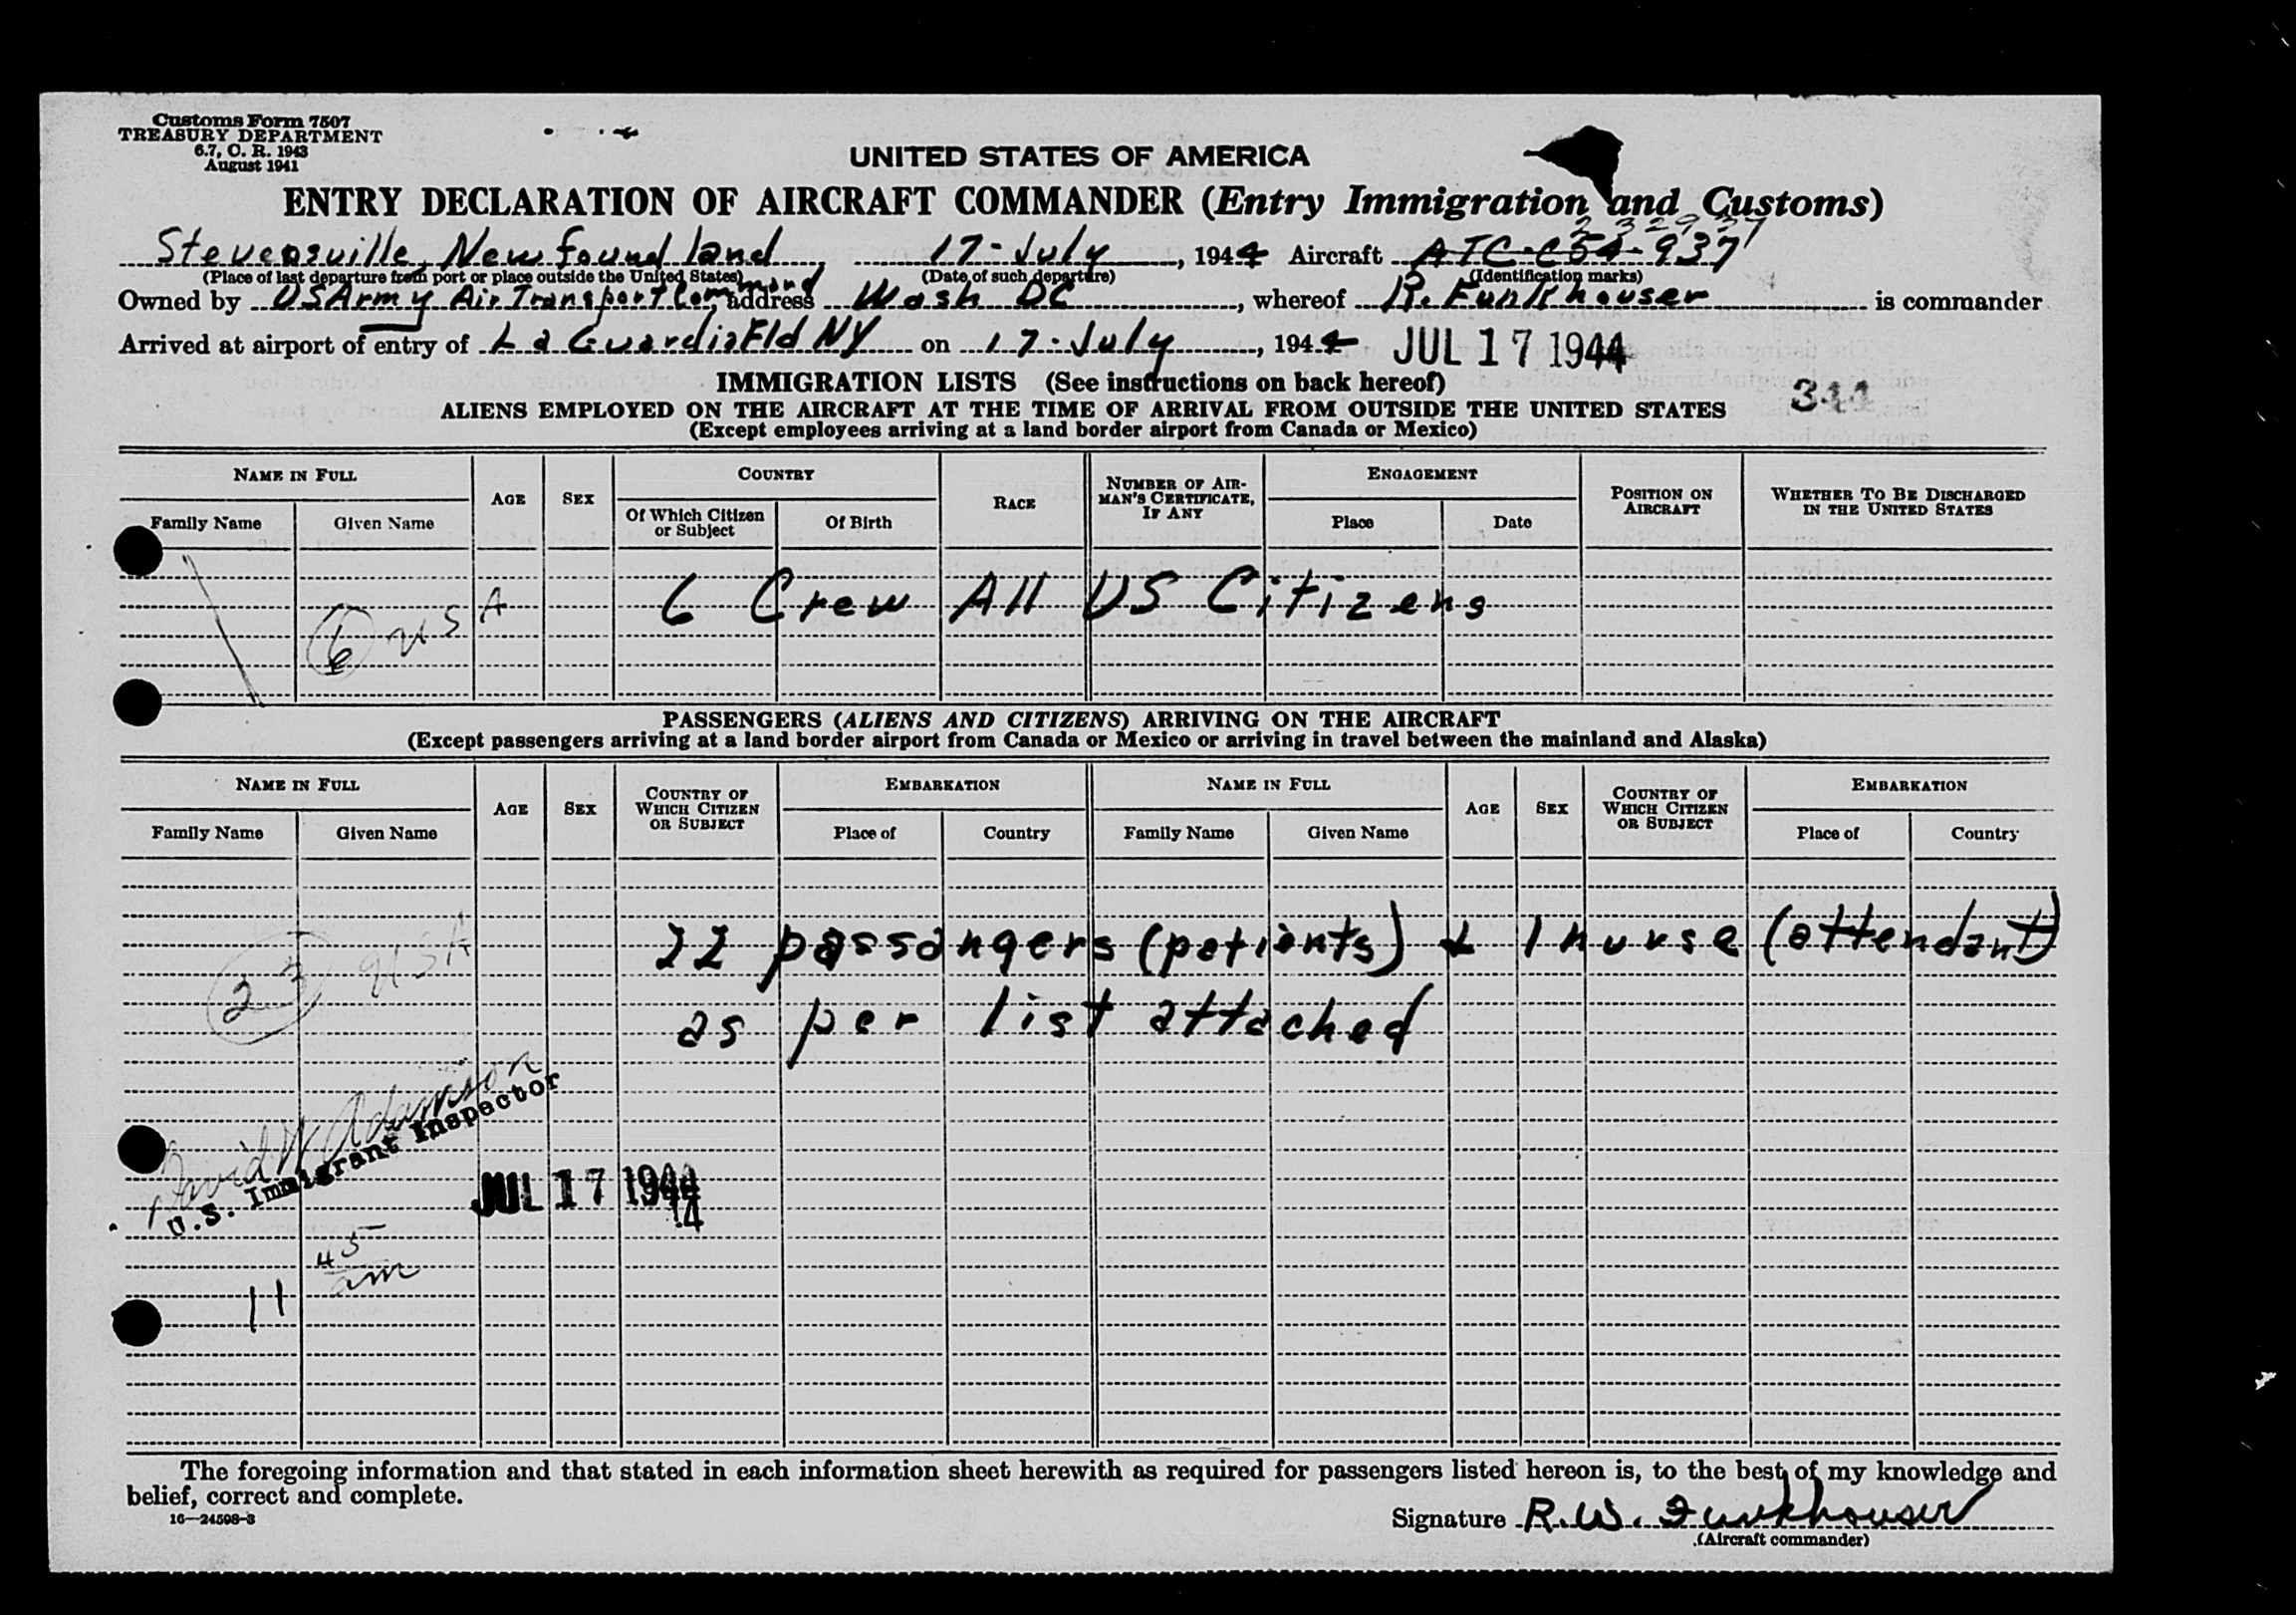 Customs Form 7507
TREASURY DEPARTMENT
6.7, C. R. 1943
August 1941
UNITED STATES OF AMERICA
ENTRY DECLARATION OF AIRCRAFT COMMANDER (Entry Immigration and Customs)
232937
Stevensville, Newfoundland, 17-July, 1944 Aircraft ATC-C54-937
(Place of last departure from port or place outside the United States) (Date of such departure) (Identification marks)
Owned by US Army Air Transport Command address Wash DC, whereof R. Funkhouser is commander
Arrived at airport of entry of La Guardia Fld NY on 17-July, 1944 JUL 17 1944
IMMIGRATION LISTS (See instructions on back hereof)
344
ALIENS EMPLOYED ON THE AIRCRAFT AT THE TIME OF ARRIVAL FROM OUTSIDE THE UNITED STATES
(Except employees arriving at a land border airport from Canada or Mexico)
NAME IN FULL AGE SEX COUNTRY RACE NUMBER OF AIRMAN'S CERTIFICATE, IF ANY ENGAGEMENT POSITION ON AIRCRAFT WHETHER TO BE DISCHARGED IN THE UNITED STATES
Family Name Given Name Of Which Citizen or Subject Of Birth Place Date
6 Crew All US Citizens
6 USA
PASSENGERS (ALIENS AND CITIZENS) ARRIVING ON THE AIRCRAFT
(Except passengers arriving at a land border airport from Canada or Mexico or arriving in travel between the mainland and Alaska)
NAME IN FULL AGE SEX COUNTRY OF WHICH CITIZEN OR SUBJECT EMBARKATION NAME IN FULL AGE SEX COUNTRY OF WHICH CITIZEN OR SUBJECT EMBARKATION
Family Name Given Name Place of Country Family Name Given Name Place of Country
22 passangers (patients) & 1 nurse (attendant)
23 USA
as per list attached
David W Adamson
U.S. Immigrant Inspector
JUL 17 1944
11 45 am
The foregoing information and that stated in each information sheet herewith as required for passengers listed hereon is, to the best of my knowledge and
belief, correct and complete.
16—24508-3
Signature R. W. Funkhouser
(Aircraft commander)